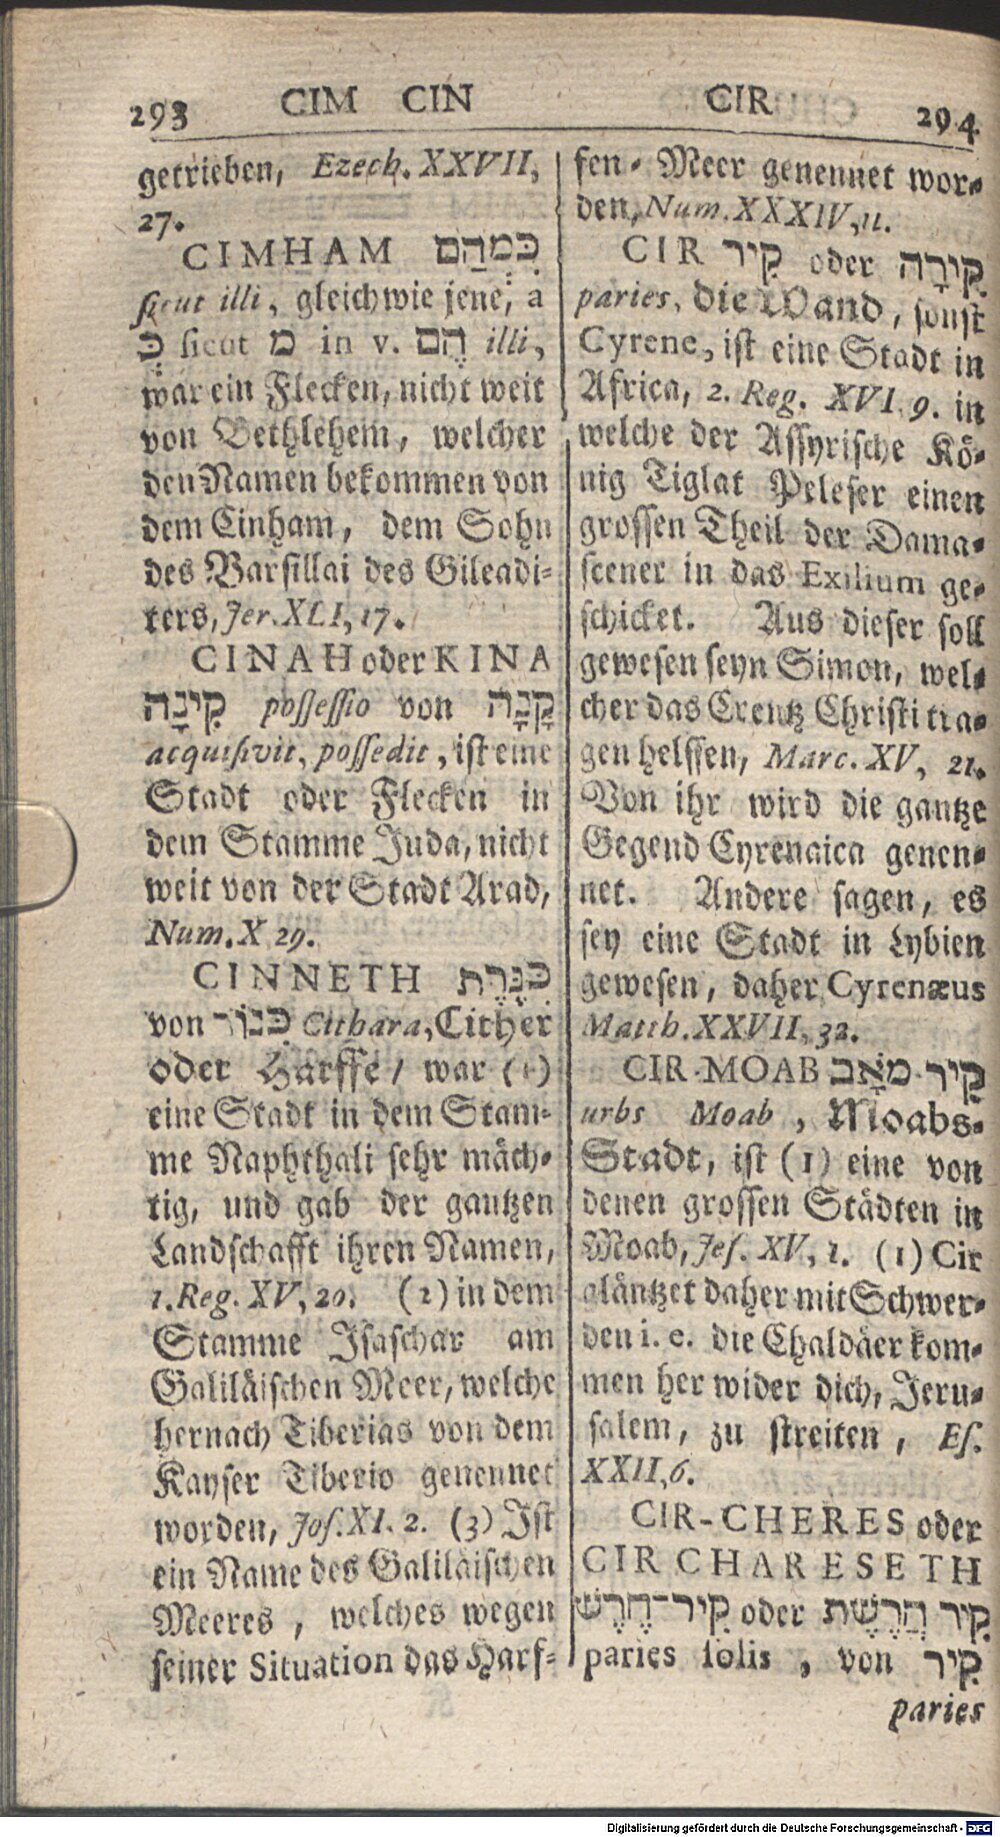 293 CIM CIN CIR 294
getrieben, Ezech. XXVII,
27.
CIMHAM כִּמְהַם
sicut illi, gleichwie jene, à
כְּ sicut מ in v. הֶם illi,
war ein Flecken, nicht weit
von Bethlehem, welcher
den Namen bekommen von
dem Cinham, dem Sohn
des Barsillai des Gileadi-
ters, Jer. XLI, 17.
CINAH oder KINA
קִינָה possessio von קָנָה
acquisivit, possedit, ist eine
Stadt oder Flecken in
dem Stamme Juda, nicht
weit von der Stadt Arad,
Num. X 29.
CINNETH כִּנֶּרֶת
von כִּנּוֹר Cithara, Cither
oder Harffe / war (1)
eine Stadt in dem Stam-
me Naphthali sehr mäch-
tig, und gab der gantzen
Landschafft ihren Namen,
1. Reg. XV, 20. (2) in dem
Stamme Isaschar am
Galiläischen Meer, welche
hernach Tiberias von dem
Kayser Tiberio genennet
worden, Jos. XI. 2. (3) Ist
ein Name des Galiläischen
Meeres, welches wegen
seiner Situation das Harf-
fen-Meer genennet wor-
den, Num. XXXIV, 11.
CIR קִיר oder קִירָה
paries, die Wand, sonst
Cyrene, ist eine Stadt in
Africa, 2. Reg. XVI. 9. in
welche der Assyrische Kö-
nig Tiglat Peleser einen
grossen Theil der Dama-
scener in das Exilium ge-
schicket. Aus dieser soll
gewesen seyn Simon, wel-
cher das Creutz Christi tra-
gen helffen, Marc. XV, 21.
Von ihr wird die gantze
Gegend Cyrenaica genen-
net. Andere sagen, es
sey eine Stadt in Lybien
gewesen, daher Cyrenæus
Matth. XXVII, 32.
CIR-MOAB קִיר מֹאָב
urbs Moab, Moabs-
Stadt, ist (1) eine von
denen grossen Städten in
Moab, Jes. XV, 1. (1) Cir
gläntzet daher mit Schwer-
den i. e. die Chaldäer kom-
men her wider dich, Jeru-
salem, zu streiten, Es.
XXII, 6.
CIR-CHERES oder
CIR CHARESETH
קִיר־חֶרֶשׁ oder קִיר חֲרֶשֶׁת
paries solis, von קִיר
paries
Digitalisierung gefördert durch die Deutsche Forschungsgemeinschaft - DFG